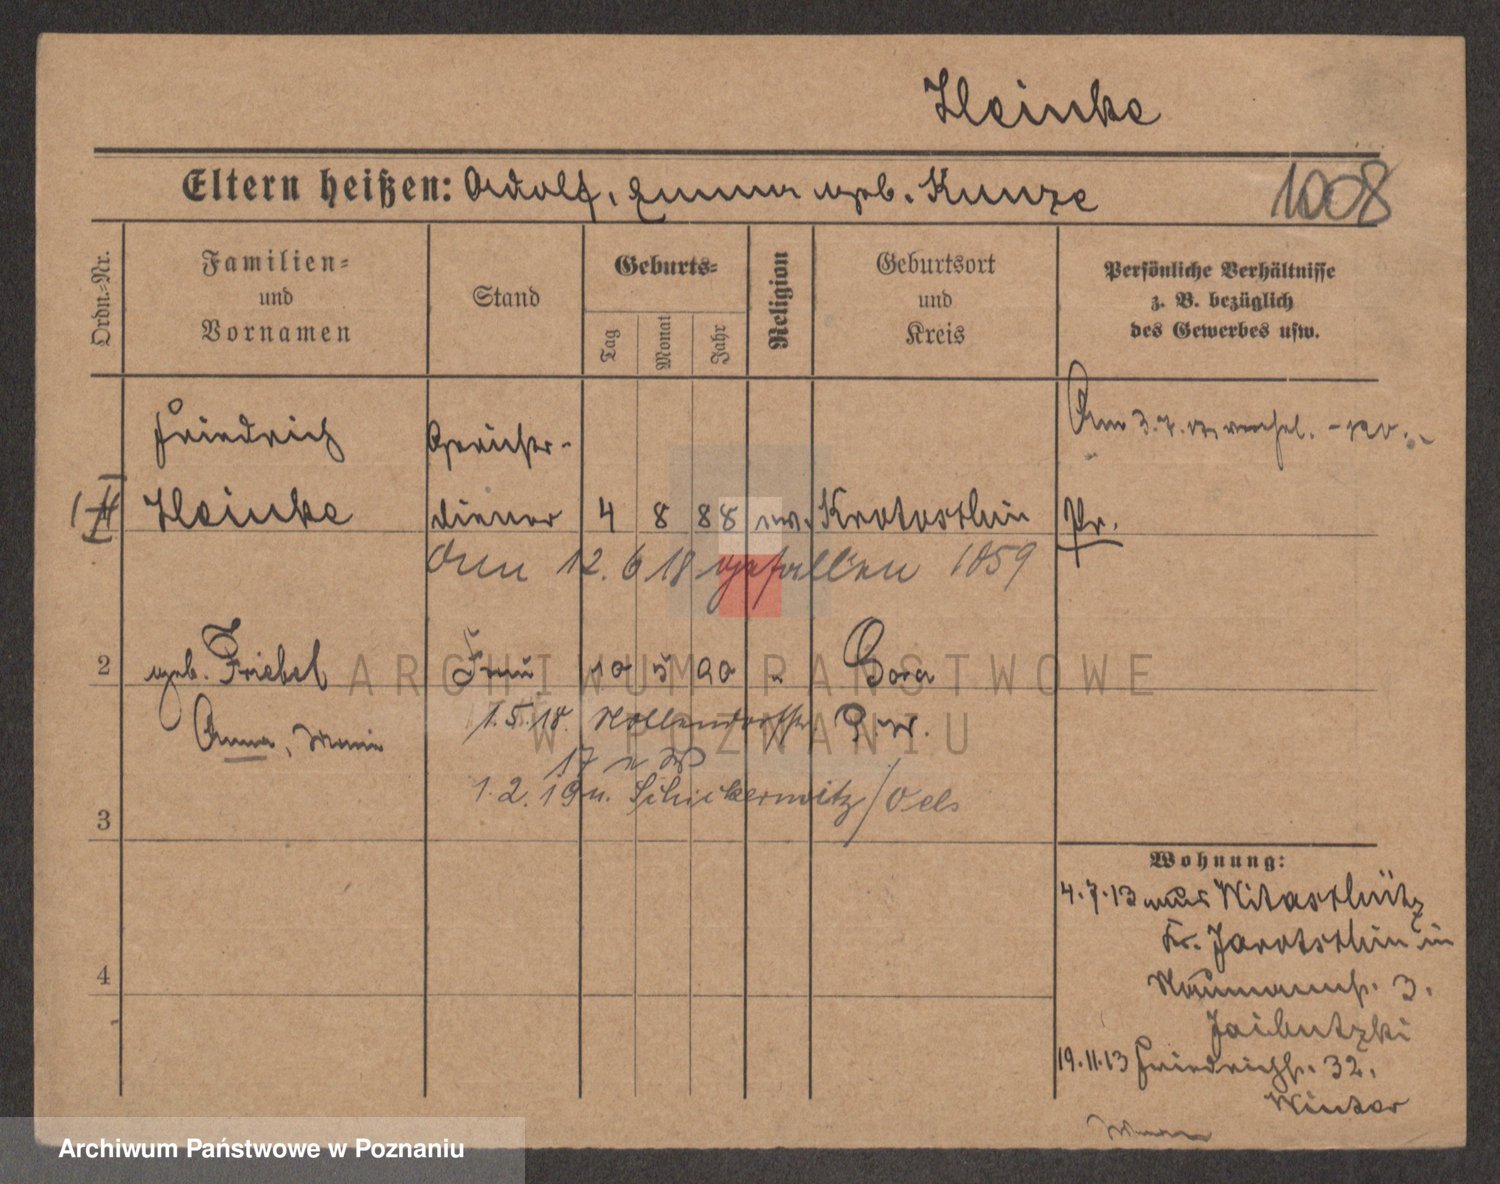 Heinke
Eltern heißen: Adolf, Emma geb. Kunze
1008
Ordn.-Nr.
Familien-
und
Vornamen
Stand
Geburts-
Tag
Monat
Jahr
Religion
Geburtsort
und
Kreis
Persönliche Verhältnisse
z. B. bezüglich
des Gewerbes usw.
Friedrich
Gerichts-
Am 3.7.
Heinke
diener
4 8 88 ev. Krotoschin
Pr.
Am 12. 6 18 gefallen 1059
2
geb. Friebel
Frau
10 5 90 "
Gora
Anna, Marie
1.5.18. Hollendorffstr
P. W.
17 n W
1.2.19 n. Schickerwitz/Oels
3
Wohnung:
4.7.13 aus Witaschütz
Kr. Jarotschin in
Naumannst. 3.
4
19.11.13 Friedrichst. 32.
Winter
ARCHIWUM PAŃSTWOWE
W POZNANIU
Archiwum Państwowe w Poznaniu